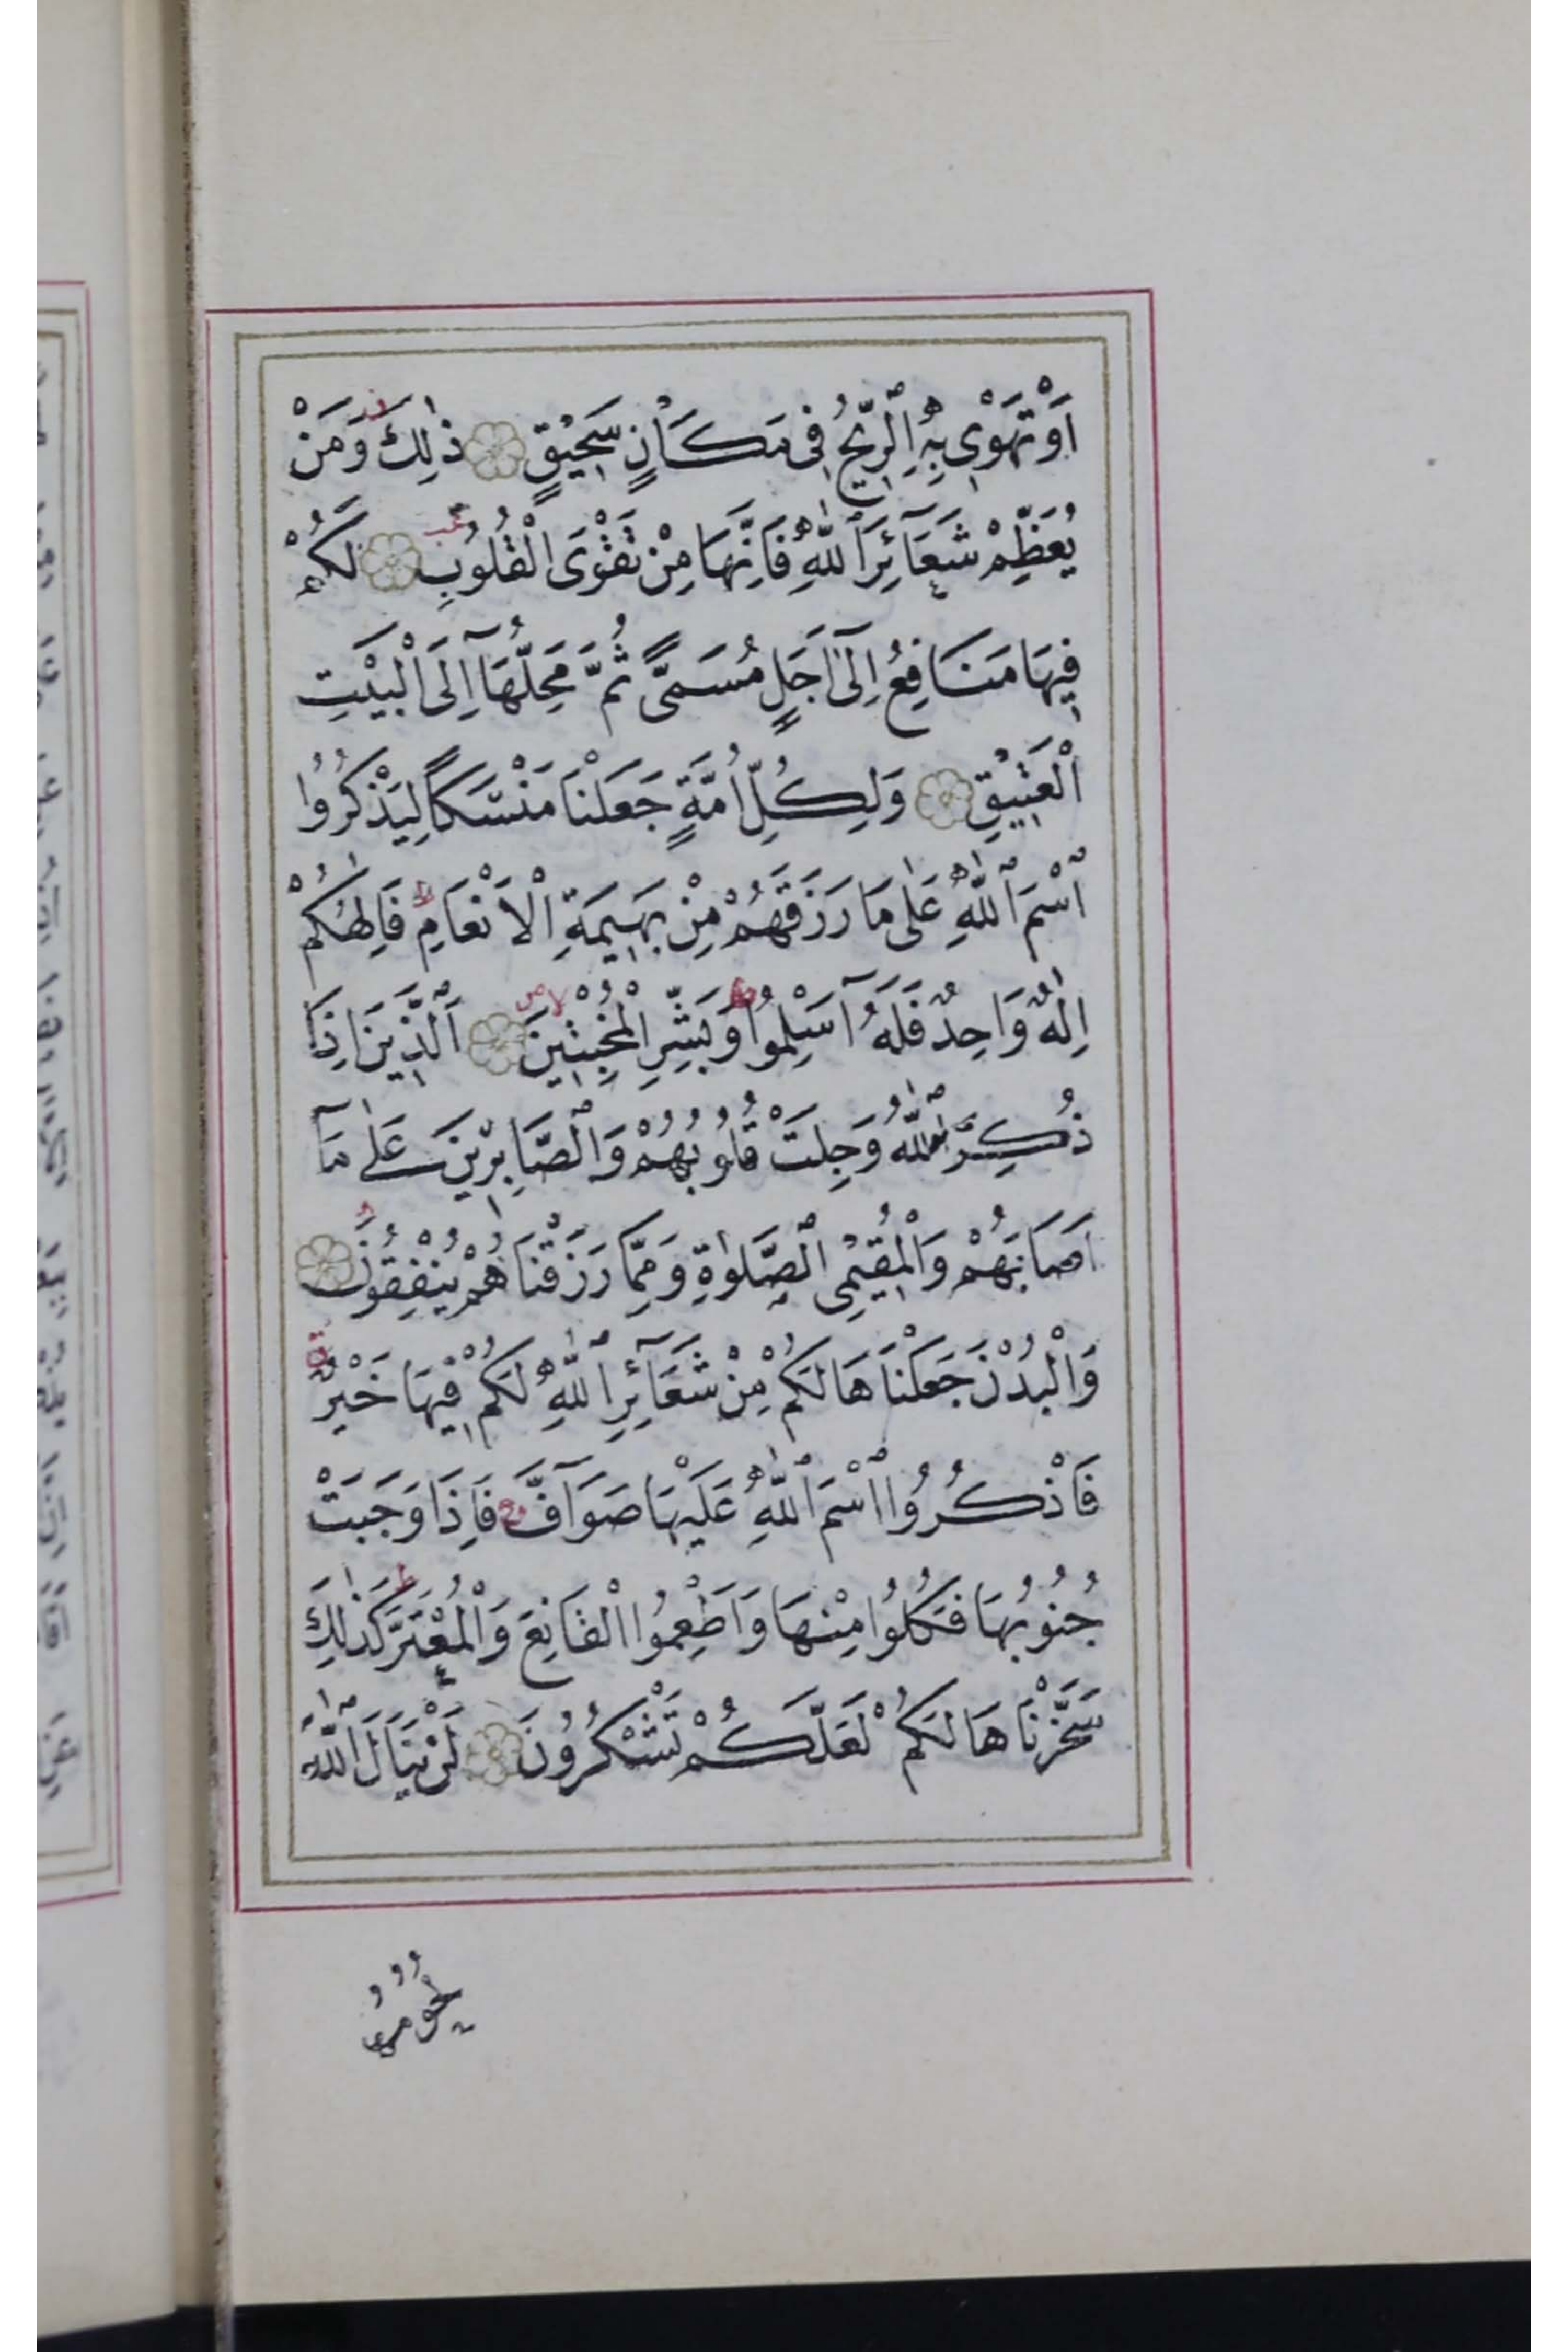 اَوْ تَهْوٖى بِهِ ٱلرّٖيحُ فٖى مَكَانٍ سَحٖيقٍ ذٰلِكَ وَمَنْ
يُعَظِّمْ شَعَآئِرَ ٱللّٰهِ فَاِنَّهَا مِنْ تَقْوَى الْقُلُوبِ لَكُمْ
فٖيهَا مَنَافِعُ اِلٰٓى اَجَلٍ مُسَمًّى ثُمَّ مَحِلُّهَآ اِلَى ٱلْبَيْتِ
ٱلْعَتٖيقِ وَلِكُلِّ اُمَّةٍ جَعَلْنَا مَنْسَكًا لِيَذْكُرُوا
ٱسْمَ ٱللّٰهِ عَلٰى مَا رَزَقَهُمْ مِنْ بَهٖيمَةِ ٱلْاَنْعَامِ فَاِلٰهُكُمْ
اِلٰهٌ وَاحِدٌ فَلَهُٓ اَسْلِمُوا وَبَشِّرِ الْمُخْبِتٖينَ ٱَلَّذٖينَ اِذَا
ذُكِرَ ٱللّٰهُ وَجِلَتْ قُلُوبُهُمْ وَٱلصَّابِرٖينَ عَلٰى مَآ
اَصَابَهُمْ وَٱلْمُقٖيمِى ٱلصَّلٰوةِ وَمِمَّا رَزَقْنَاهُمْ يُنْفِقُونَ
وَٱلْبُدْنَ جَعَلْنَاهَا لَكُمْ مِنْ شَعَآئِرِ ٱللّٰهِ لَكُمْ فٖيهَا خَيْرٌ
فَاذْكُرُوا ٱسْمَ ٱللّٰهِ عَلَيْهَا صَوَآفَّ فَاِذَا وَجَبَتْ
جُنُوبُهَا فَكُلُوا مِنْهَا وَاَطْعِمُوا الْقَانِعَ وَٱلْمُعْتَرَّ كَذٰلِكَ
سَخَّرْنَاهَا لَكُمْ لَعَلَّكُمْ تَشْكُرُونَ لَنْ يَنَالَ ٱللّٰهَ
لُحُومُهَا